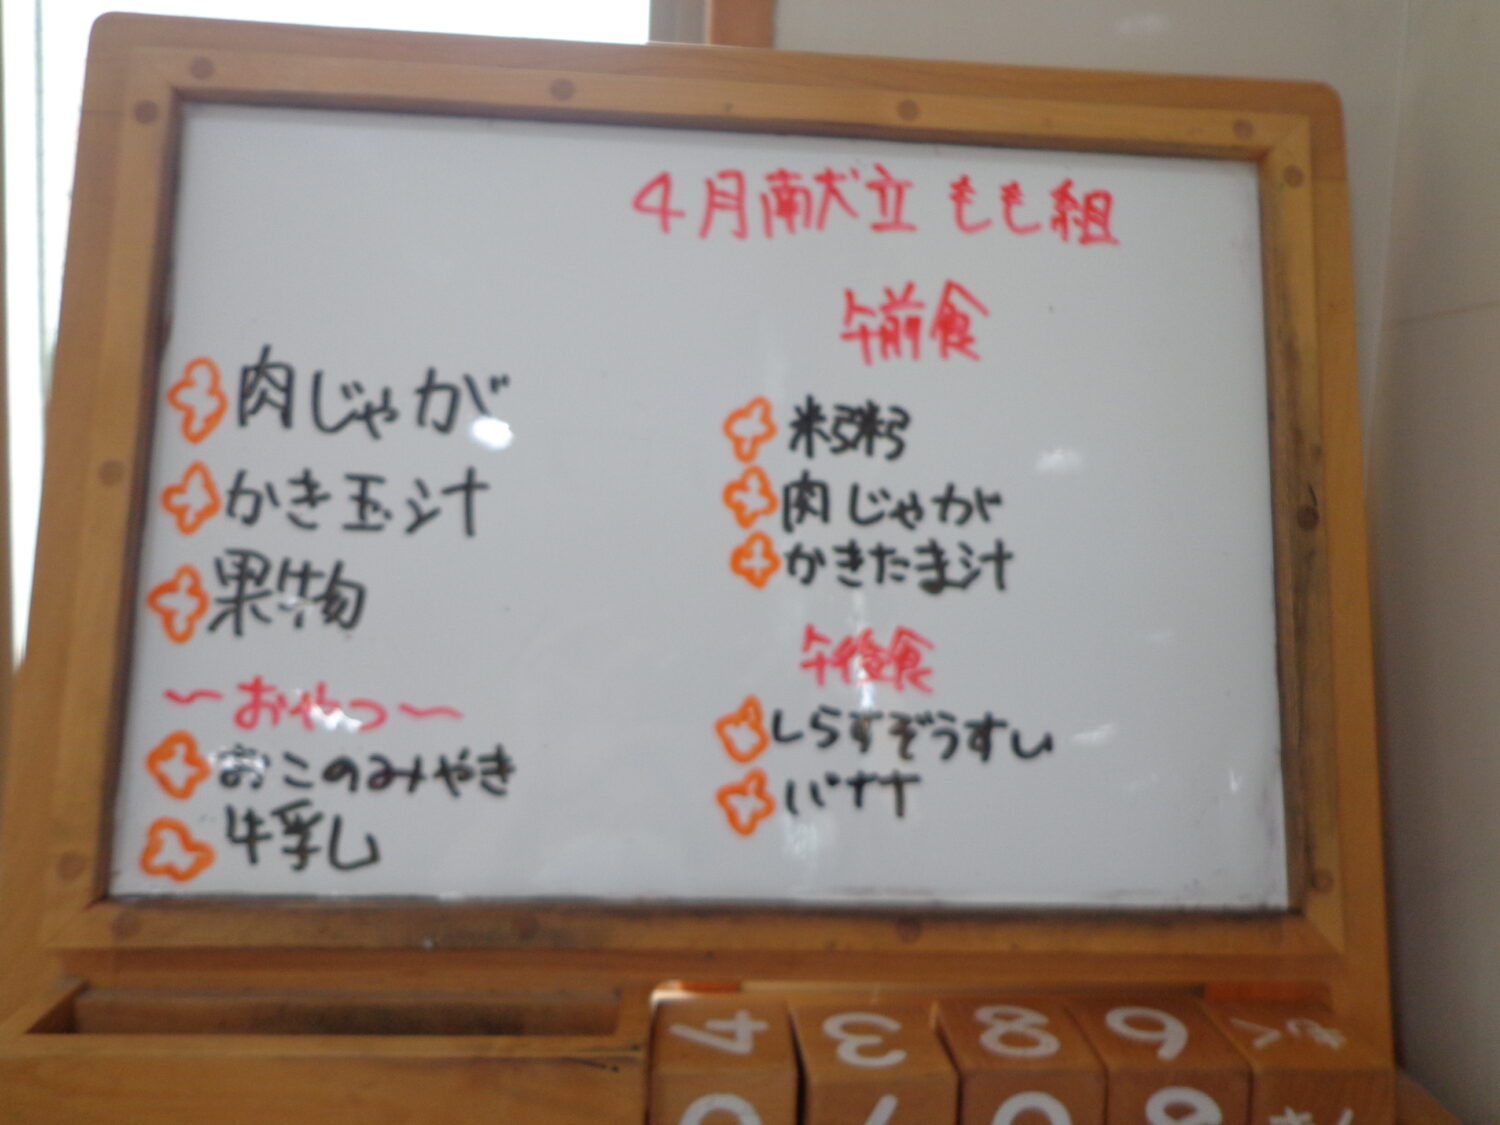 4月献立 もも組
肉じゃが
かき玉汁
果物
～おやつ～
おこのみやき
牛乳
午前食
粥
肉じゃが
かきたま汁
午後食
しらすぞうすい
バナナ
4 3 8 6
0 7 0 8